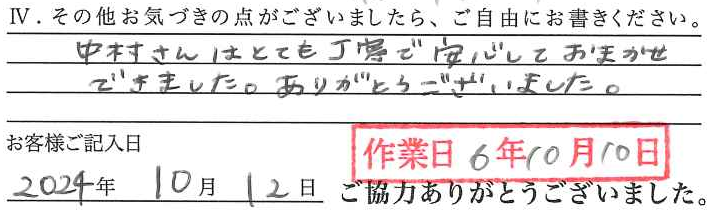 Ⅳ．その他お気づきの点がございましたら、ご自由にお書きください。
中村さんはとても丁寧で安心しておまかせ
できました。ありがとうございました。
お客様ご記入日
作業日 6年10月10日
2024年 10月 12日 ご協力ありがとうございました。